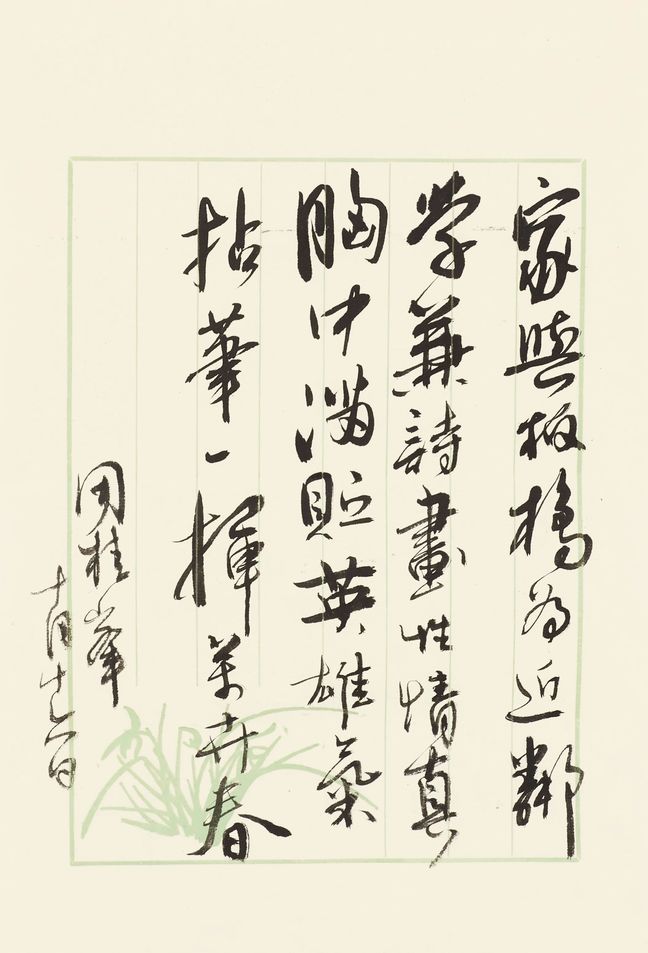 家與板橋為近鄰
学兼詩畫性情真
胸中满貯英雄氣
拈筆一揮萬卉春
周桂峯
十月十六日